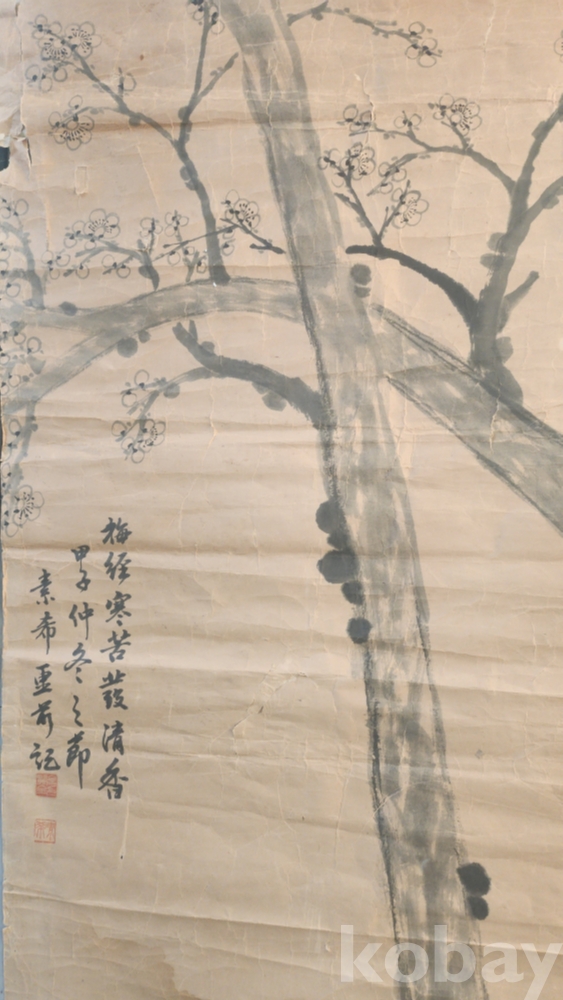 梅經寒苦發清香
甲子仲冬之節
素希
記
kobay